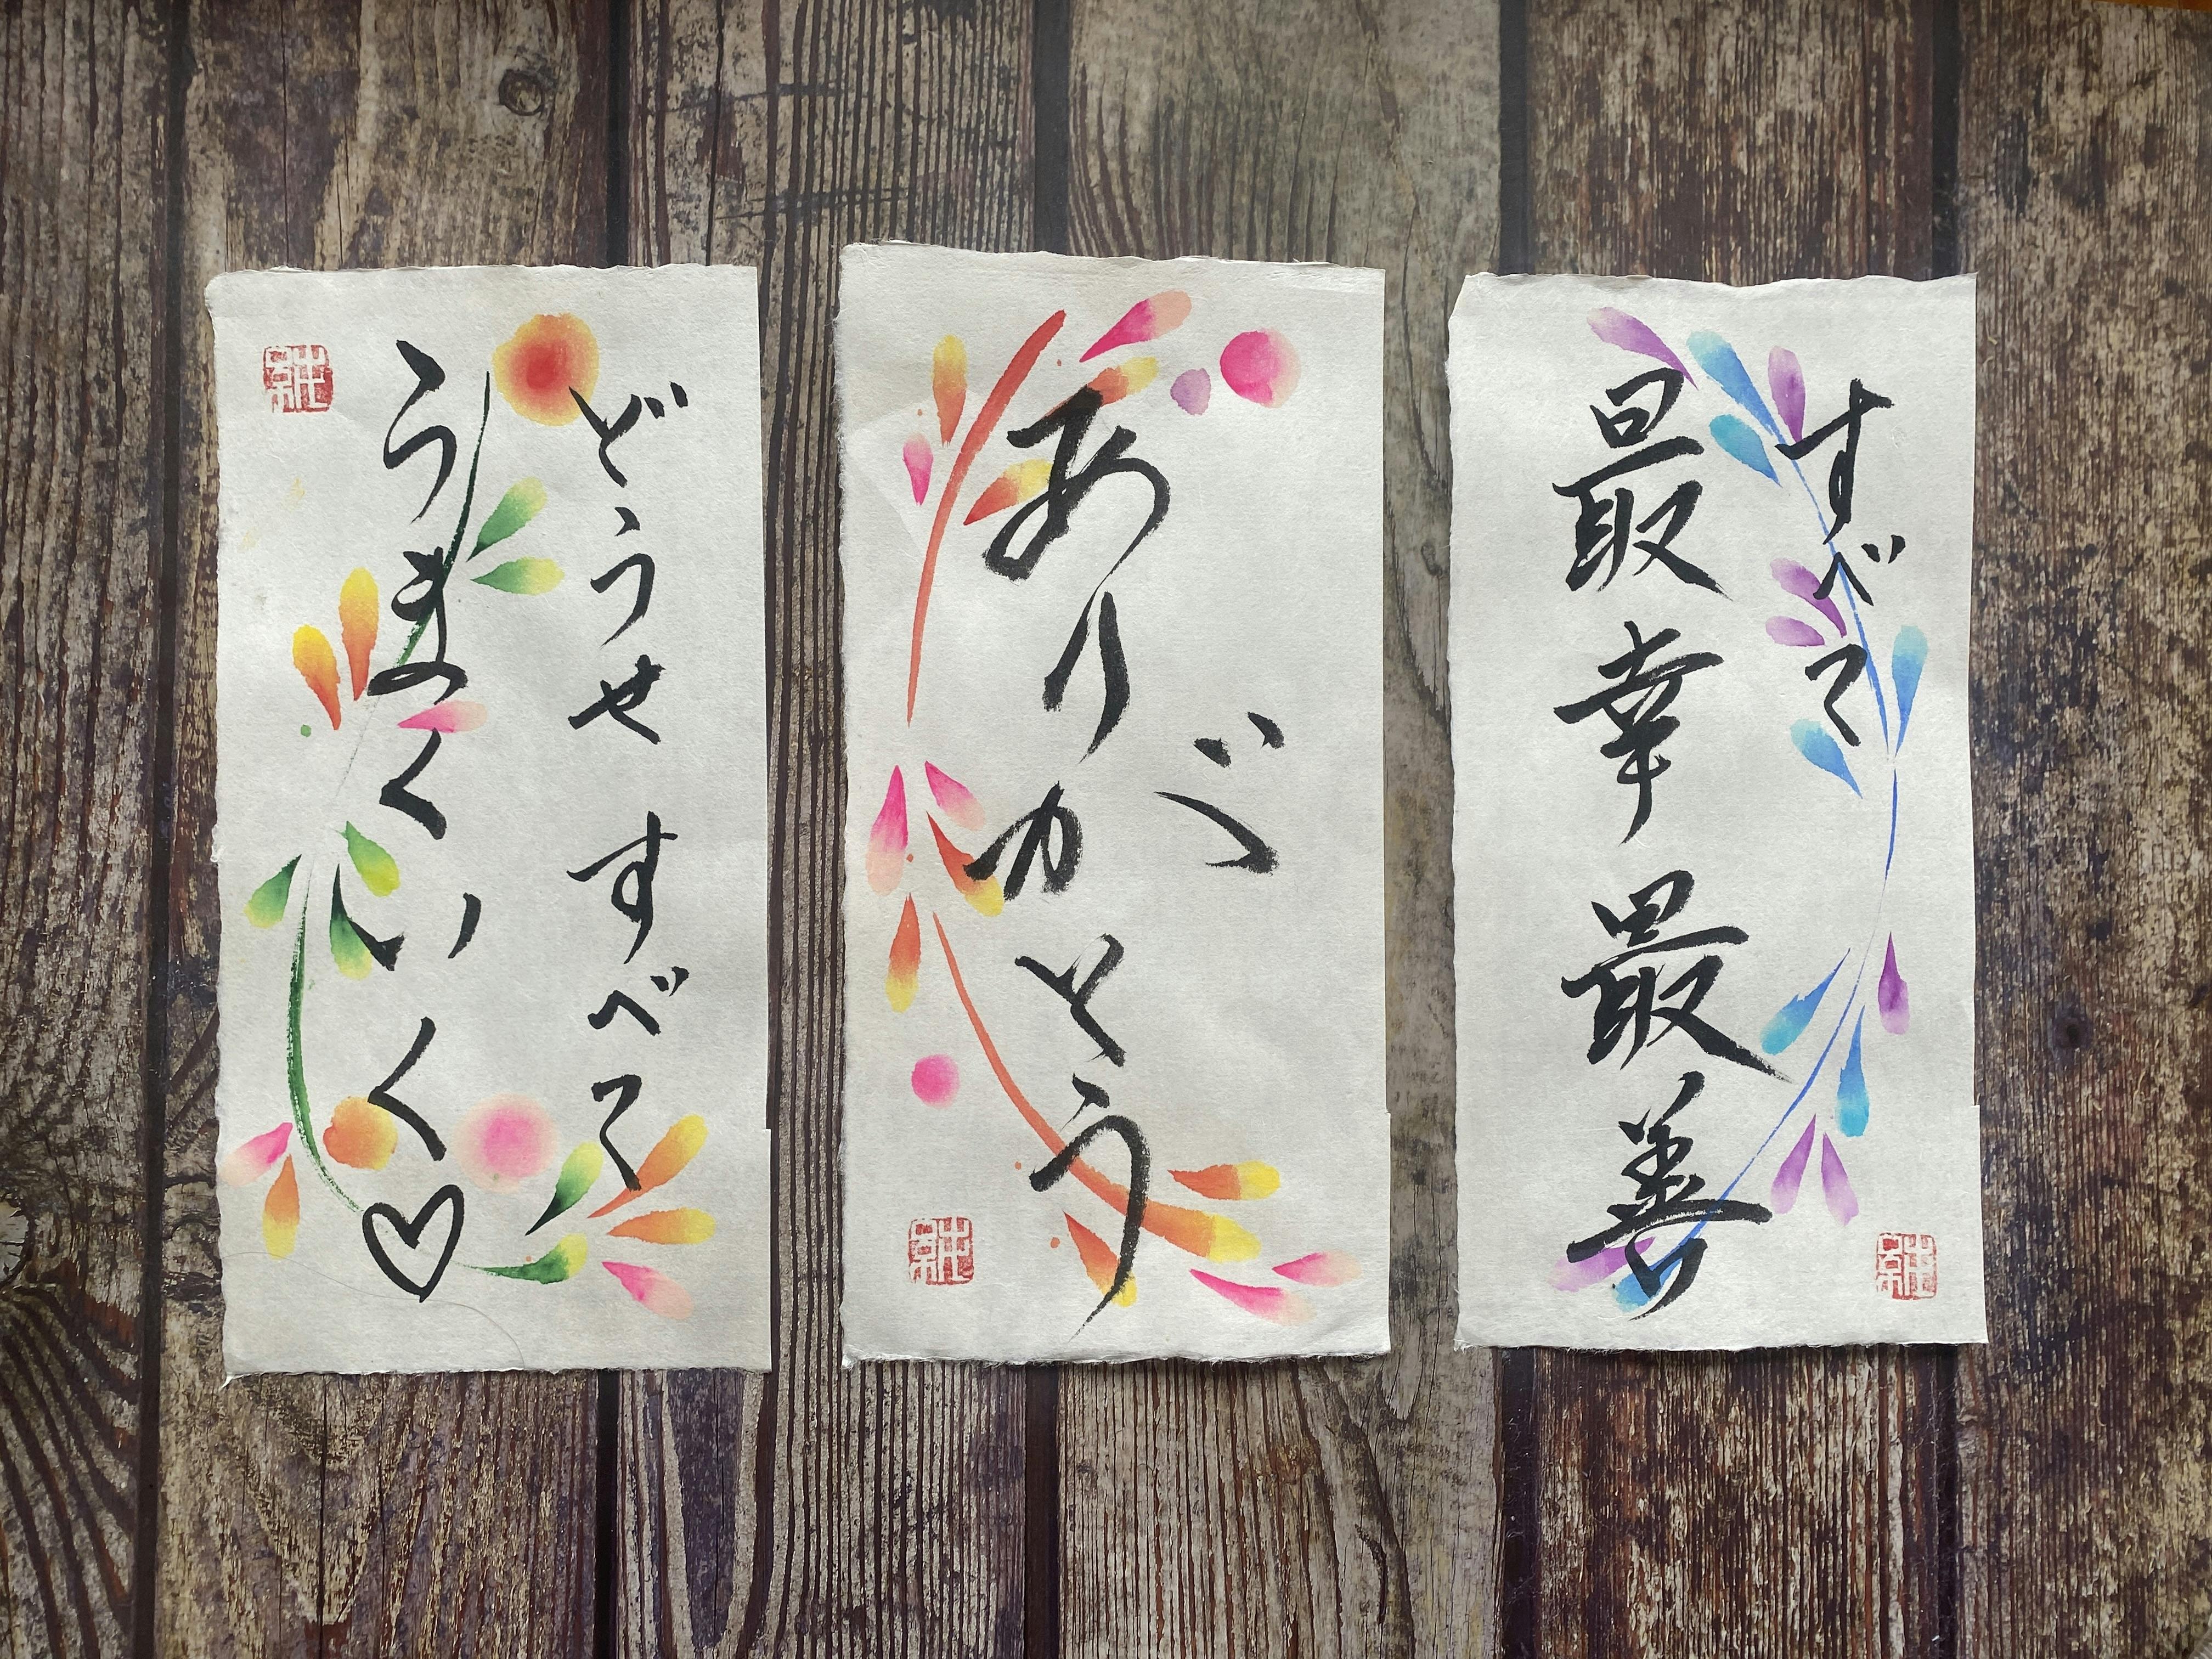 すべて
最幸最善
ありがとう
どうせすべて
うまくいく♡